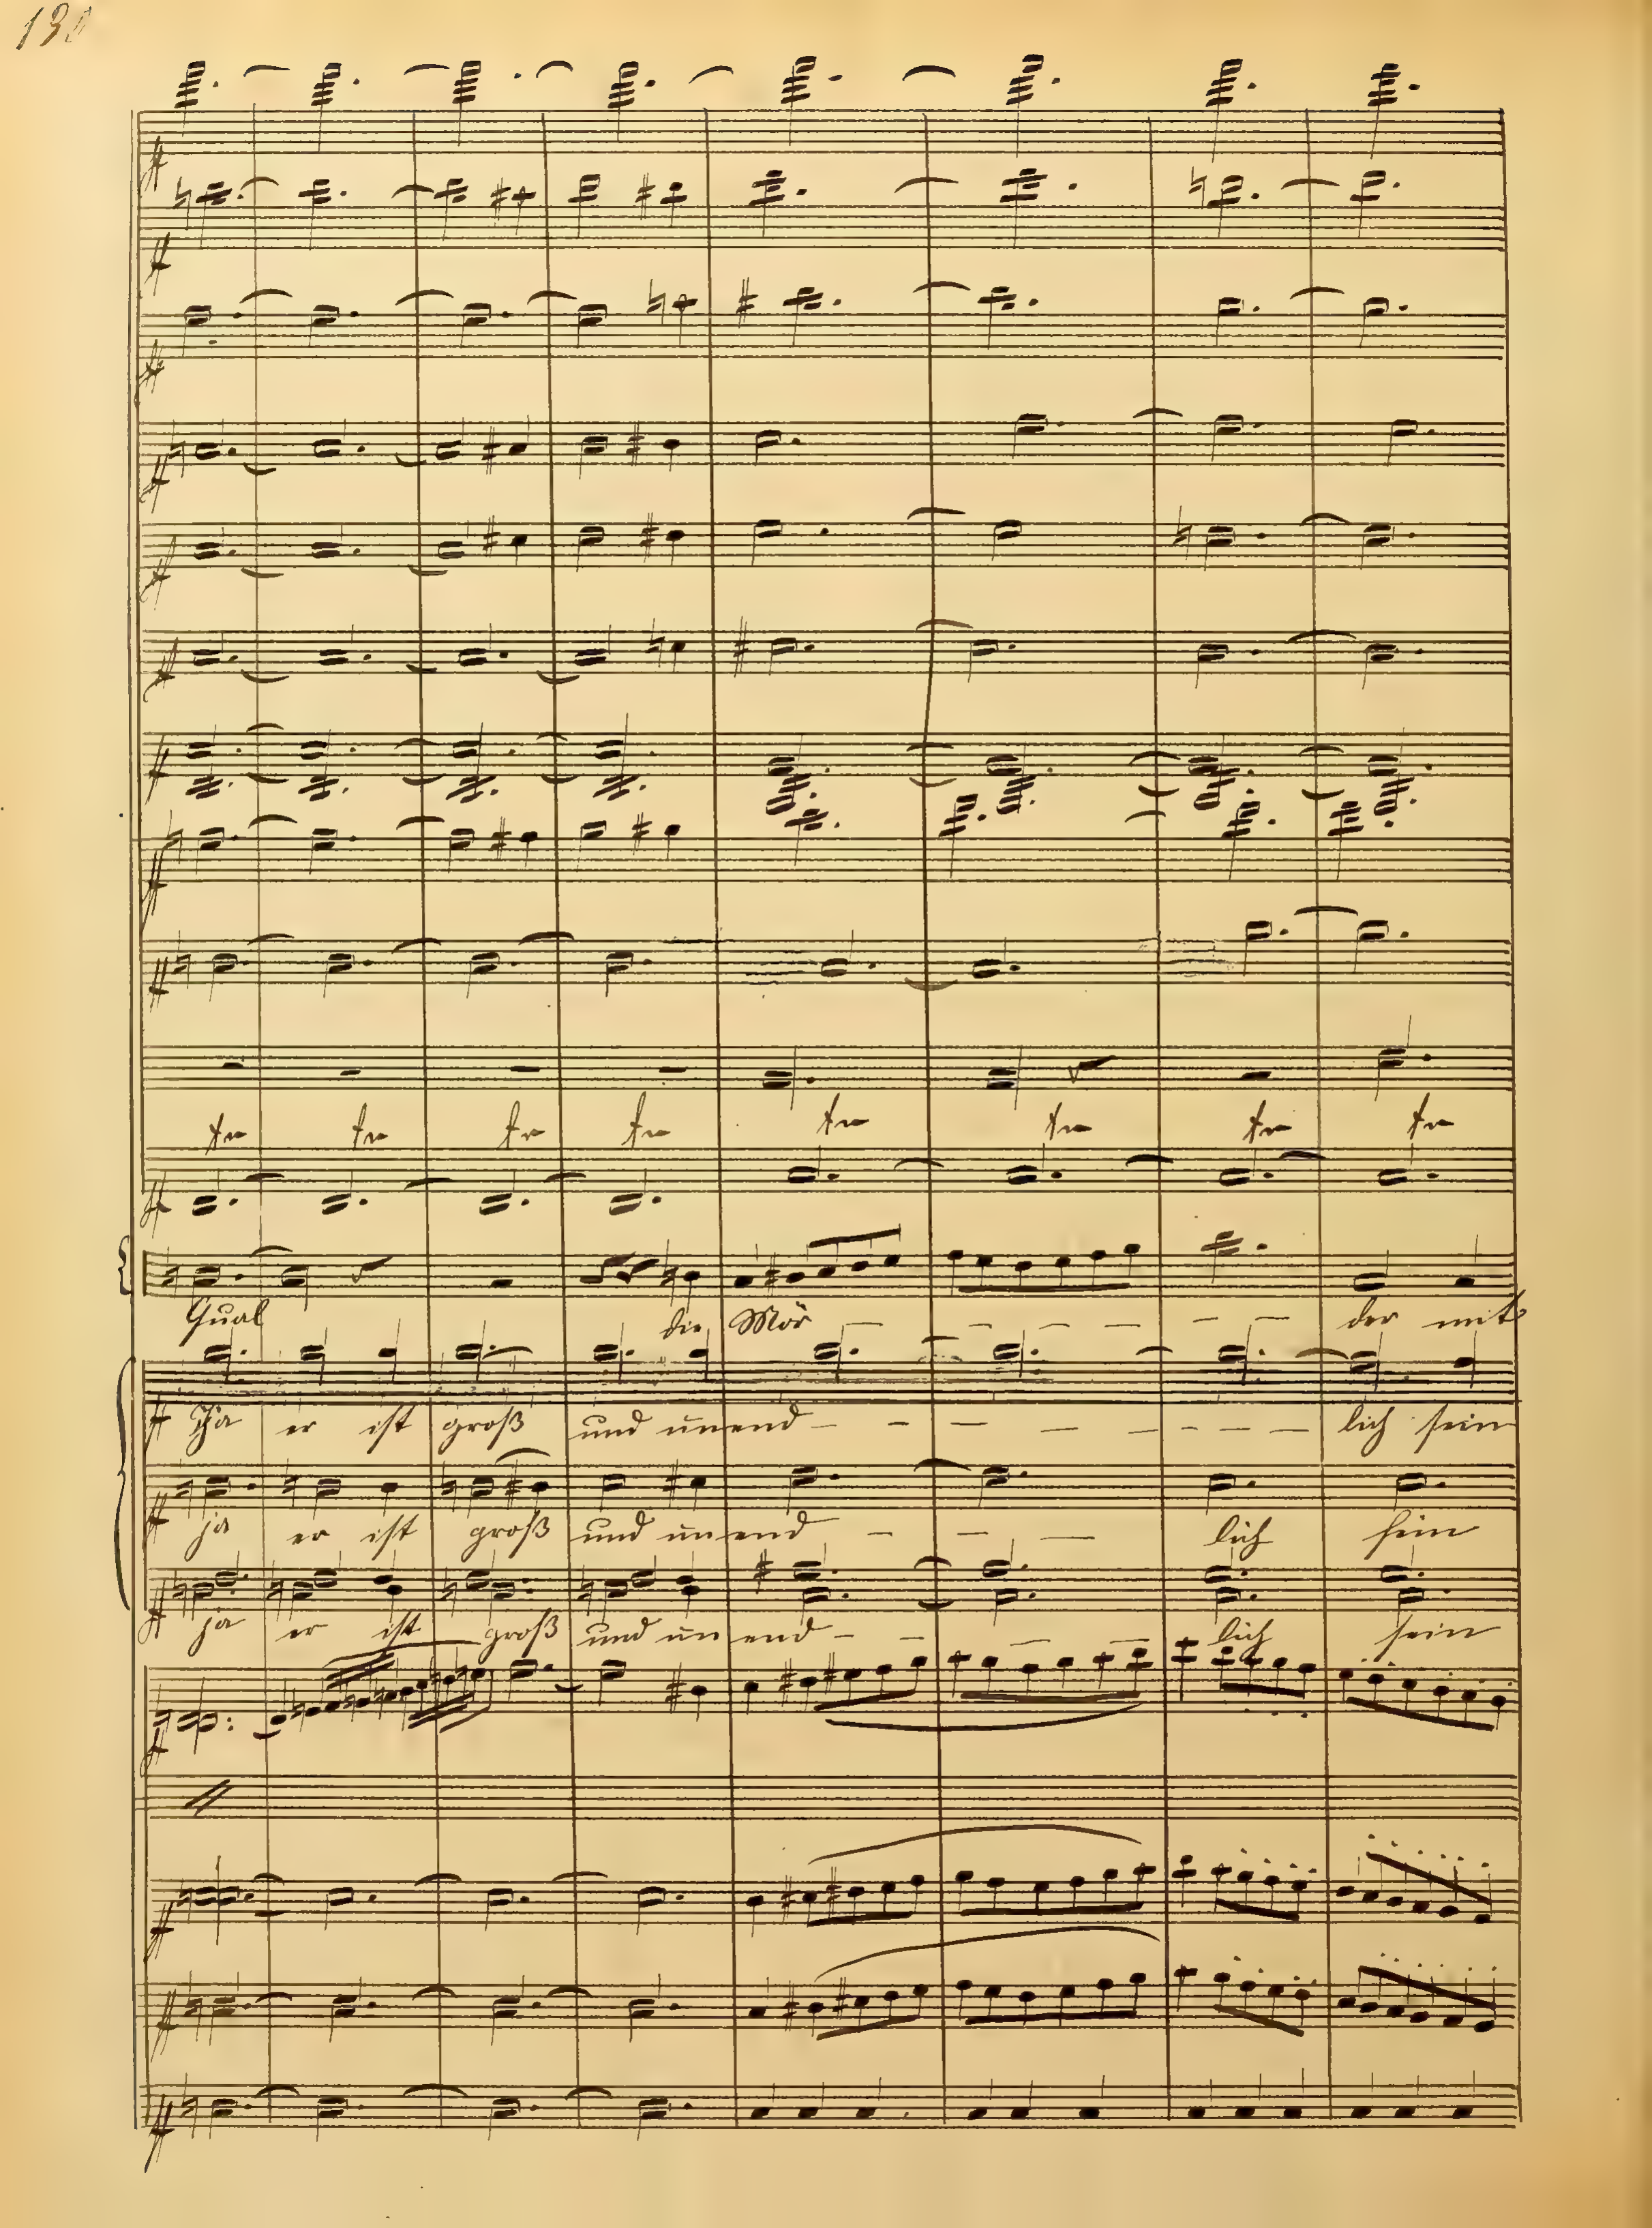 tr tr tr tr tr tr tr tr
Qual die Mör – – – – – – – der mit
Ja er ist groß und unend – – – – – – – – lich sein
ja er ist groß und unend – – – lich sein
ja er ist groß und unend – – – – lich sein